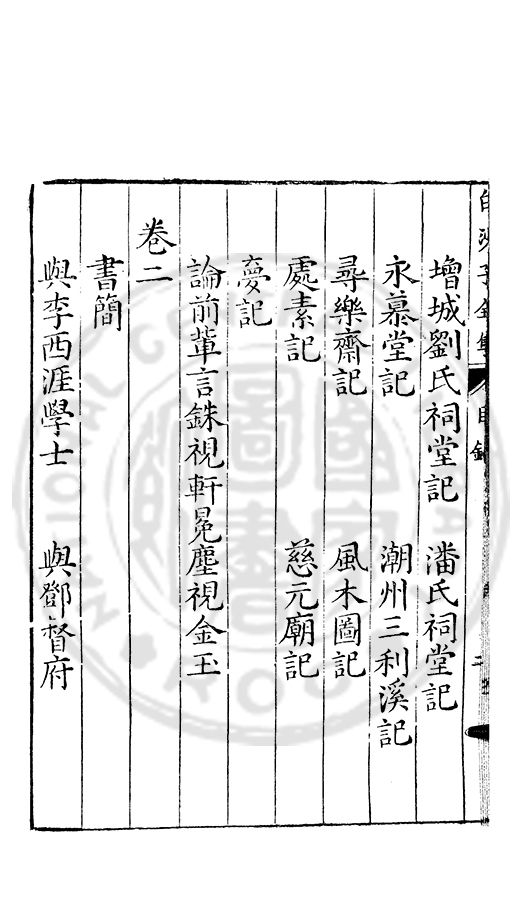 增城劉氏祠堂記 潘氏祠堂記
永慕堂記 潮州三利溪記
尋樂齋記 風木圖記
處素記 慈元廟記
夣記
論前輩言銖視軒冕塵視金玉
卷二
書簡
與李西涯學士 與鄧督府